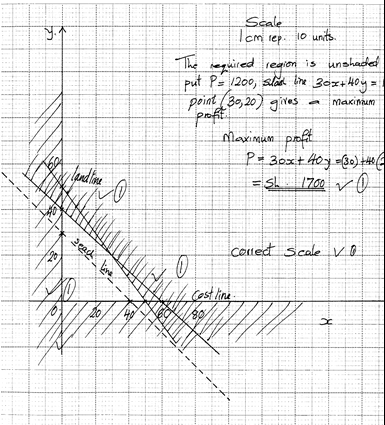 Scale
1cm rep. 10 units.
The required region is unshaded
put P = 1200, line 30x+40y = 1
point (30,20) gives a maximum
profit.
Maximum profit
P = 30x + 40y = (30) + 40(
= Sh. 1700 ✓ ①
correct scale ✓ ①
y
60
landline
✓ ①
40
20
line
✓ ①
✓ ①
Costline
0 20 40 60 80
x